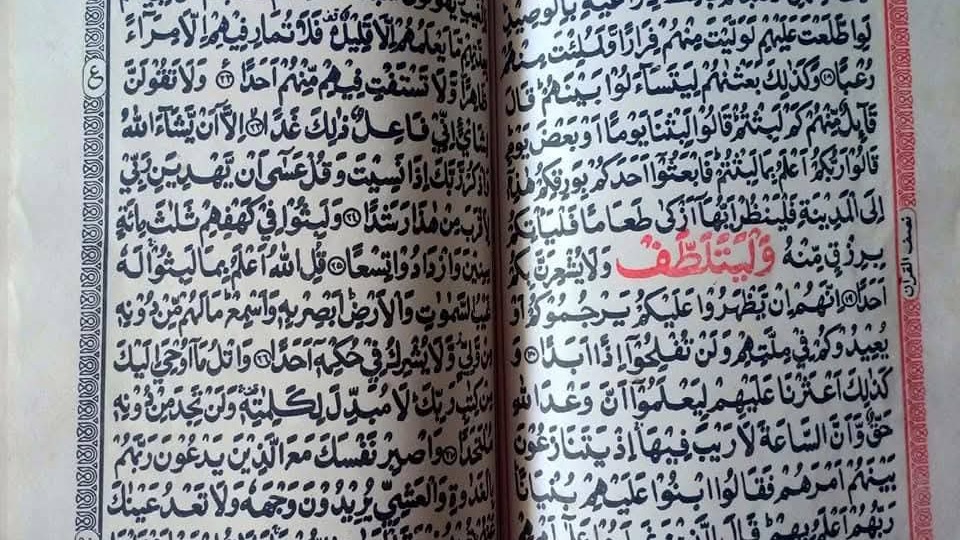 بِالْوَصِيْدِ
لَوِ اطَّلَعْتَ عَلَيْهِمْ لَوَلَّيْتَ مِنْهُمْ فِرَارًا وَّلَمُلِئْتَ مِنْهُمْ
رُعْبًا ۝١٨ وَكَذٰلِكَ بَعَثْنٰهُمْ لِيَتَسَآءَلُوْا بَيْنَهُمْ قَالَ
قَآئِلٌ مِّنْهُمْ كَمْ لَبِثْتُمْ قَالُوْا لَبِثْنَا يَوْمًا اَوْ بَعْضَ يَوْمٍ
قَالُوْا رَبُّكُمْ اَعْلَمُ بِمَا لَبِثْتُمْ فَابْعَثُوْٓا اَحَدَكُمْ بِوَرِقِكُمْ هٰذِهٖٓ
اِلَى الْمَدِيْنَةِ فَلْيَنْظُرْ اَيُّهَآ اَزْكٰى طَعَامًا فَلْيَاْتِكُمْ
بِرِزْقٍ مِّنْهُ وَلْيَتَلَطَّفْ وَلَا يُشْعِرَنَّ بِكُمْ
اَحَدًا ۝١٩ اِنَّهُمْ اِنْ يَّظْهَرُوْا عَلَيْكُمْ يَرْجُمُوْكُمْ اَوْ
يُعِيْدُوْكُمْ فِيْ مِلَّتِهِمْ وَلَنْ تُفْلِحُوْٓا اِذًا اَبَدًا ۝٢٠ وَ
كَذٰلِكَ اَعْثَرْنَا عَلَيْهِمْ لِيَعْلَمُوْٓا اَنَّ وَعْدَ اللّٰهِ
حَقٌّ وَّاَنَّ السَّاعَةَ لَا رَيْبَ فِيْهَا اِذْ يَتَنَازَعُوْنَ
بَيْنَهُمْ اَمْرَهُمْ فَقَالُوا ابْنُوْا عَلَيْهِمْ بُنْيَانًا
رَبُّهُمْ اَعْلَمُ بِهِمْ قَالَ الَّذِيْنَ
نصف القرآن
رَّبِّيْٓ اَعْلَمُ بِعِدَّتِهِمْ مَّا يَعْلَمُهُمْ اِلَّا قَلِيْلٌ فَلَا تُمَارِ فِيْهِمْ اِلَّا مِرَآءً
ظَاهِرًا وَّلَا تَسْتَفْتِ فِيْهِمْ مِّنْهُمْ اَحَدًا ۝٢٢ وَلَا تَقُوْلَنَّ
لِشَايْءٍ اِنِّيْ فَاعِلٌ ذٰلِكَ غَدًا ۝٢٣ اِلَّآ اَنْ يَّشَآءَ اللّٰهُ
وَاذْكُرْ رَّبَّكَ اِذَا نَسِيْتَ وَقُلْ عَسٰٓى اَنْ يَّهْدِيَنِ رَبِّيْ
لِاَقْرَبَ مِنْ هٰذَا رَشَدًا ۝٢٤ وَلَبِثُوْا فِيْ كَهْفِهِمْ ثَلٰثَ مِائَةٍ
سِنِيْنَ وَازْدَادُوْا تِسْعًا ۝٢٥ قُلِ اللّٰهُ اَعْلَمُ بِمَا لَبِثُوْا لَهٗ
غَيْبُ السَّمٰوٰتِ وَالْاَرْضِ اَبْصِرْ بِهٖ وَاَسْمِعْ مَا لَهُمْ مِّنْ دُوْنِهٖ
مِنْ وَّلِيٍّ وَّلَا يُشْرِكُ فِيْ حُكْمِهٖٓ اَحَدًا ۝٢٦ وَاتْلُ مَآ اُوْحِيَ اِلَيْكَ
مِنْ كِتَابِ رَبِّكَ لَا مُبَدِّلَ لِكَلِمٰتِهٖ وَلَنْ تَجِدَ مِنْ دُوْنِهٖ
مُلْتَحَدًا ۝٢٧ وَاصْبِرْ نَفْسَكَ مَعَ الَّذِيْنَ يَدْعُوْنَ رَبَّهُمْ
بِالْغَدٰوةِ وَالْعَشِيِّ يُرِيْدُوْنَ وَجْهَهٗ وَلَا تَعْدُ عَيْنٰكَ
ع